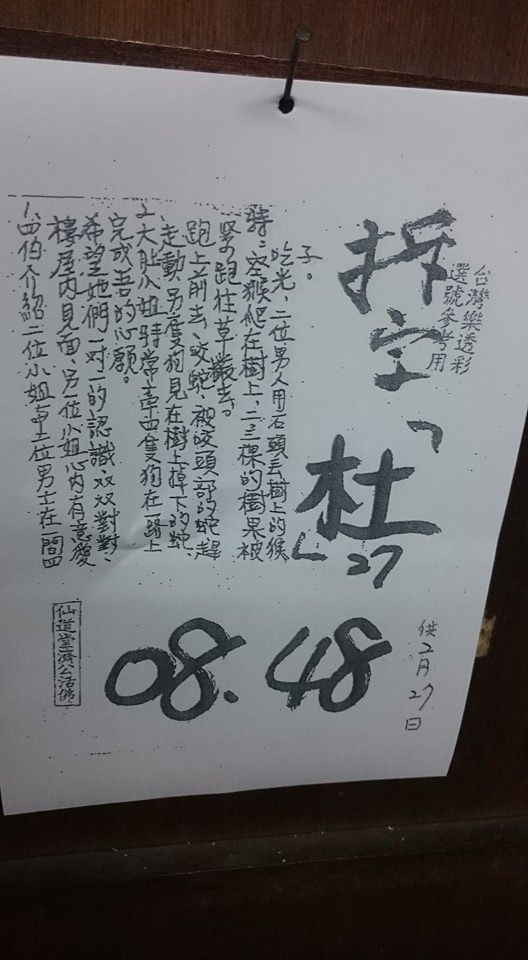 台灣樂透彩
選號參考用
拆字「杜」27
供2月27日
08.48
1.四伯介紹二位小姐与三位男士在一間四
樓屋內見面、另一位小姐心內有意慶
希望她們一對一的認識双双對對、
完成吾的心願。
2.大能小姐時常牽四隻狗在一路上
走動.另隻狗見在樹上掉下的蛇、
跑上前去、咬蛇、被咬頭部的蛇趕
緊跑往草叢去。
特:空猴爬在樹上、二三棵的樹果被
吃光、二位男人用石頭丢樹上的猴
子。
仙道堂濟公活佛